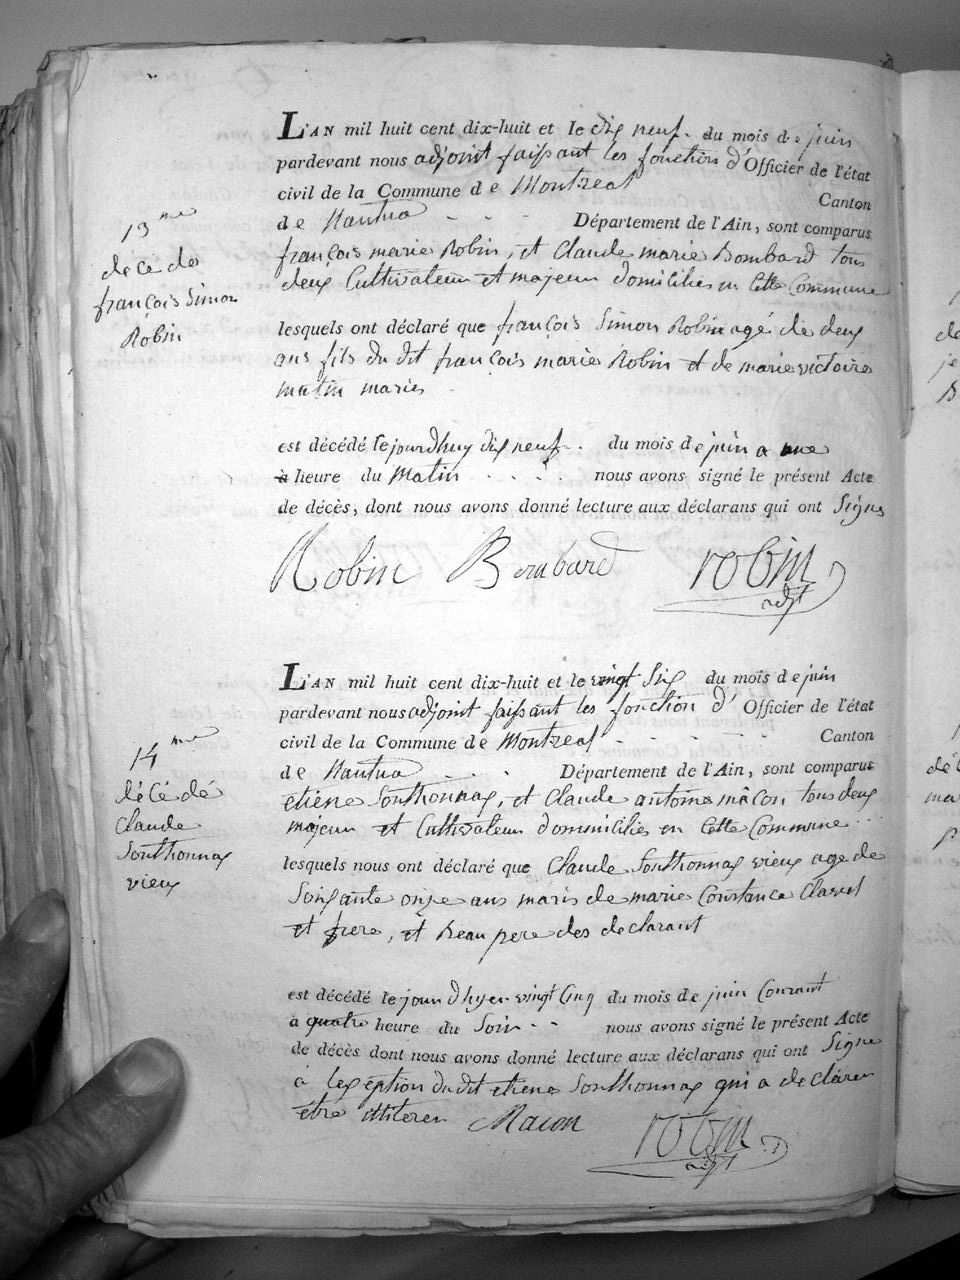 L'AN mil huit cent dix-huit et le dix neuf. du mois de juin
pardevant nous adjoint faissant les fonction d' Officier de l'état
civil de la Commune de Montreal Canton
de Nantua Département de l'Ain, sont comparus
françois marie Robin, et Claude marie Bombard tous
deux Cultivateur et majeur domiciliés en cette Commune
13me
décé dé
françois Simon
Robin
lesquels ont déclaré que françois Simon Robin agé de deux
ans fils du dit françois marie Robin et de marie victoire
matin mariés
est décédé le jourdhuy dix neuf.. du mois de juin a une
à heure du Matin .... nous avons signé le présent Acte
de décès, dont nous avons donné lecture aux déclarans qui ont Signé
Robin Bombard robin
adjt
L'AN mil huit cent dix-huit et le vingt Six du mois de juin
pardevant nous adjoint faissant les fonction d' Officier de l'état
civil de la Commune de Montreal Canton
de Nantua Département de l'Ain, sont comparus
etiene Sonthonnax, et Claude antoine mâcon tous deux
majeur et Cultivateur domiciliés en cette Commune
14me
décé dé
Claude
Sonthonnax
vieux
lesquels nous ont déclaré que Claude Sonthonnax vieux age de
Soixante onze ans maris de marie Constance Claret
et frere, et Beau pere des declarant
est décédé le jour dhyer vingt Cinq du mois de juin Courant
à quatre heure du Soir.. nous avons signé le présent Acte
de décès dont nous avons donné lecture aux déclarans qui ont Signe
à lexception du dit etiene Sonthonnax qui a declarer
être illiterer Macon robin
adjt